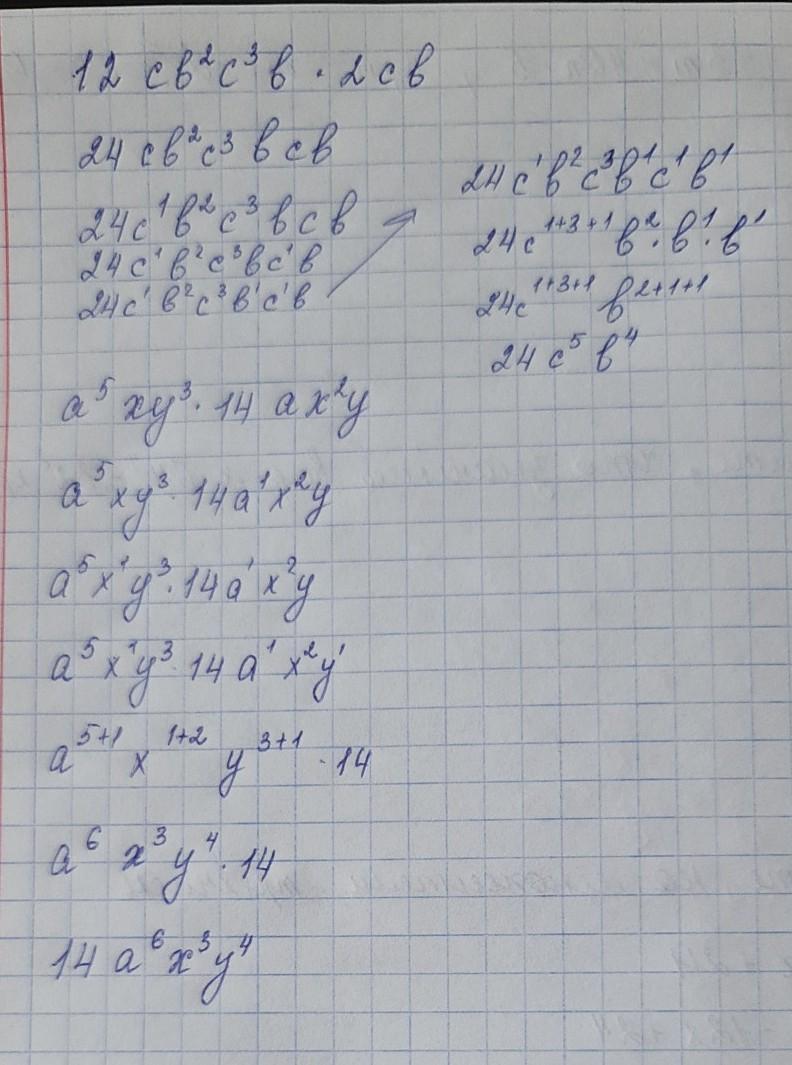 12 cb²c³b · 2cb
24 cb²c³ bcb
24c¹b²c³bcb
24c¹b²c³bc¹b
24c¹b²c³b¹c¹b
24c¹b²c³b¹c¹b¹
24c¹⁺³⁺¹ b²·b¹·b¹
24c¹⁺³⁺¹ b²⁺¹⁺¹
24 c⁵ b⁴
a⁵ xy³ · 14 ax²y
a⁵xy³ · 14a¹x²y
a⁵x¹y³ · 14a¹x²y
a⁵x¹y³ · 14a¹x²y¹
a⁵⁺¹ x¹⁺² y³⁺¹ · 14
a⁶ x³y⁴ · 14
14 a⁶x³y⁴